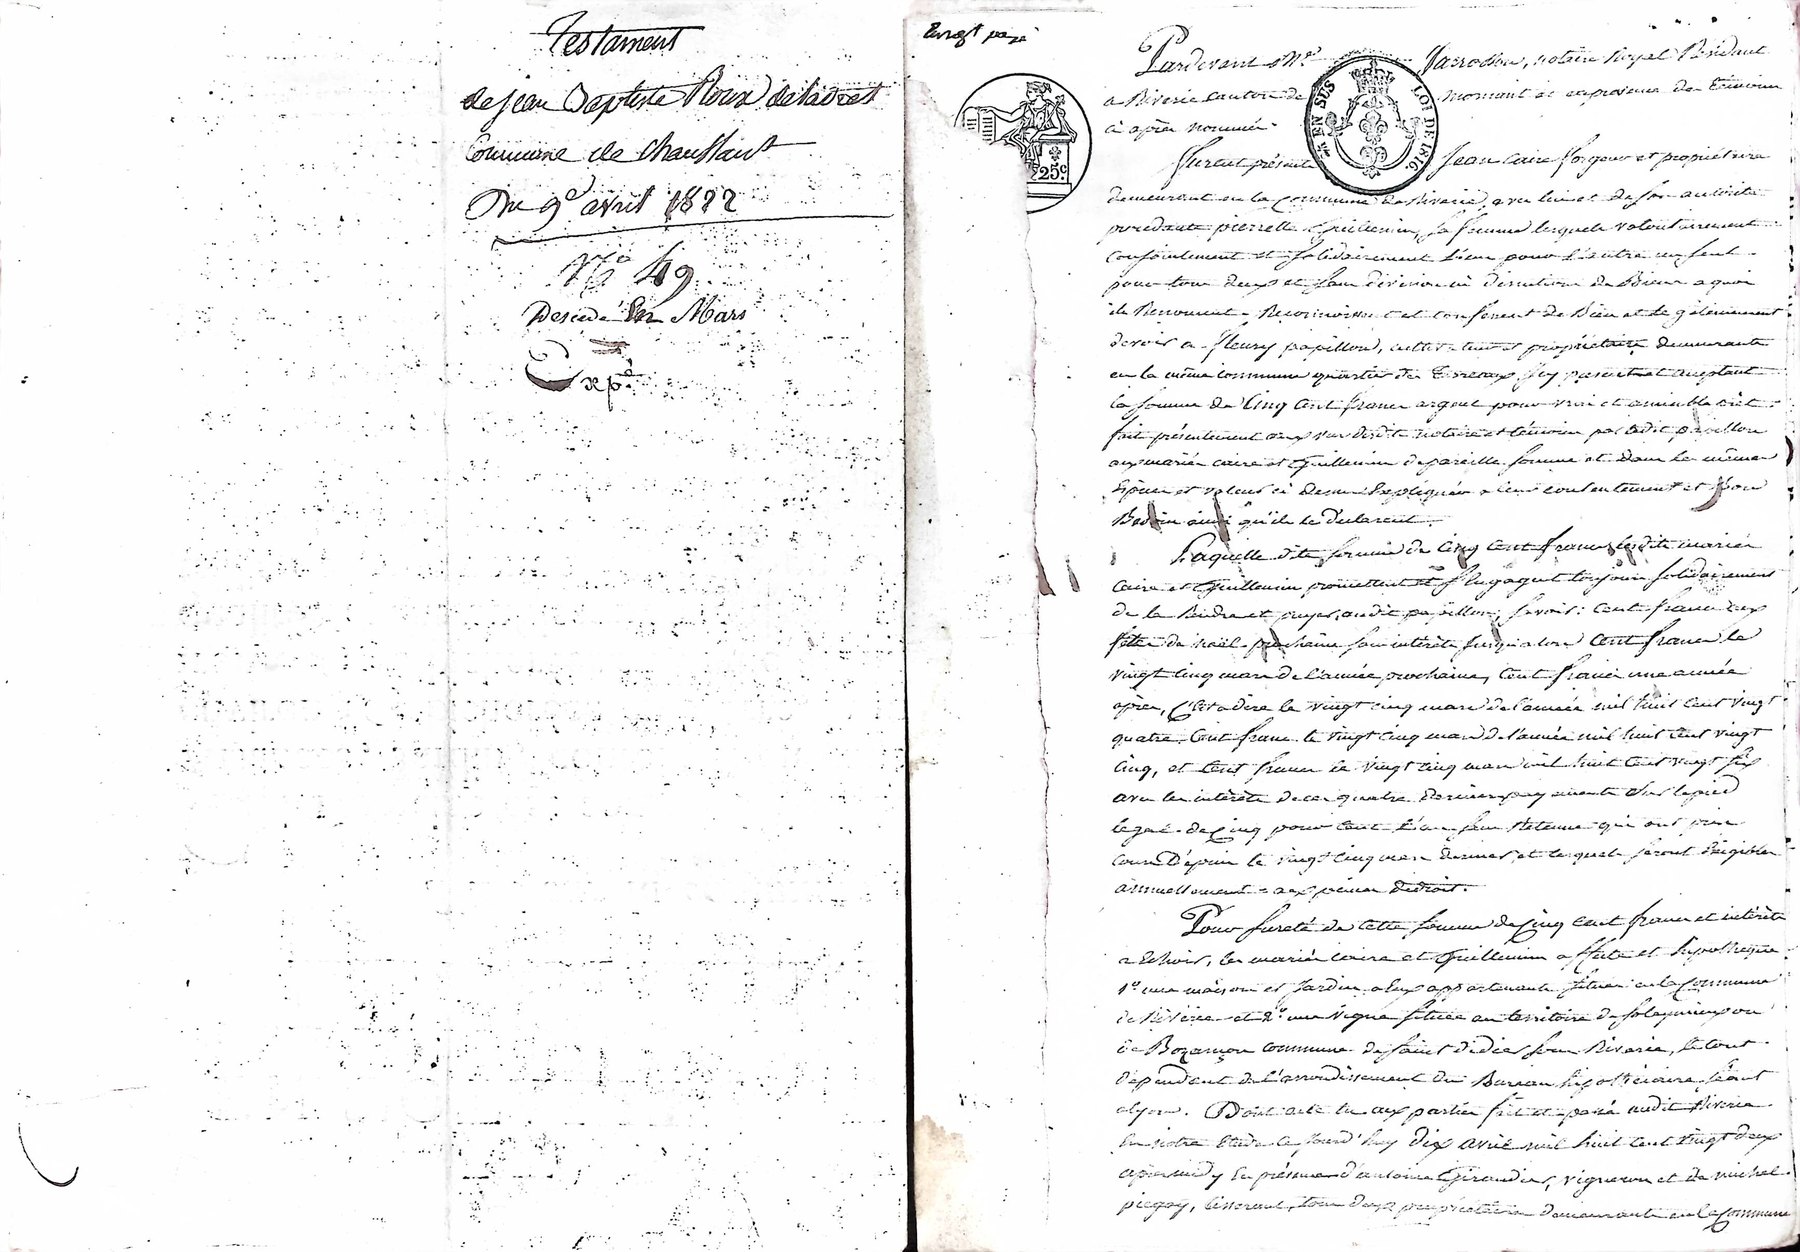 Testament
de jean Baptiste Roux de ladret
Commune de Chaussant
Du 9e avril 1822
No 49
Descedé En Mars
Exp.é
Enregt payé
Pardevant Me Jarrosson, notaire Royal Résidant
a Riverie canton de mornant et en présence des témoins
ci après nommés.
furent présents Jean Caire forgeur et propriétaire
demeurant en la Commune de Riverie, avec lui et de son autorité
procédante pierrette Guillemin, sa femme lesquels volontairement
conjointement et solidairement l'un pour l'autre un seul
pour tous deux et sans division ni discution de Biens a quoi
ils Renoncent. Reconnoissent et confessent de Bien et légitimement
devoir a fleury papillon, cultivateur et propriétaire demeurante
en la même commune quartier des Terreaux ici présent et acceptant
la somme de Cinq Cent francs argent pour vrai et amiable prêt
fait présentement aux vus desdits notaire et témoins par ledit papillon
aux mariés caire et Guillemin de pareille somme et dans les mêmes
Espèces et valeurs ci dessus Expliquées a leur contentement et Bon
Besoin ainsi qu'ils le déclarent.
Laquelle dite somme de Cinq Cent francs lesdits mariés
Caire et Guillemin promettent et s'engagent toujours solidairement
de la Rendre et payer audit papillon, savoir: Cent francs aux
fêtes de noël prochaine sans intérêts jusqu'alors Cent francs le
vingt Cinq mars de l'année prochaine, Cent francs une année
après, C'est a dire le vingt cinq mars de l'année mil huit Cent vingt
quatre, Cent francs le vingt Cinq mars de l'année mil huit Cent vingt
Cinq, et Cent francs le vingt Cinq mars mil huit Cent vingt six
avec les intérêts de ces quatre derniers payements sur le pied
légal de Cinq pour Cent l'an sans Retenue qui ont pris
Cours Depuis le vingt Cinq mars dernier, et lesquels seront Exigibles
annuellement aux peines de droit.
Pour sureté de cette somme de Cinq Cent francs et intérêts
a Echoir, les mariés caire et Guillemin affecte et hipothèque
1o une maison et Jardin a eux appartenants situés en la Commune
de Riverie et 2o une vigne située au territoire de ou
de Bozançon commune de Saint didier sous Riverie, le tout
dépendant de l'arrondissement du Bureau hipothécaire séant
a lyon. Dont acte lu aux parties fait et passé audit Riverie
En notre Etude ce Jourd'huy dix avril mil huit Cent vingt deux
après midy En présence d'antoine Giraudier, vigneron et de michel
piegay, tisserant, tous deux propriétaires demeurants en la Commune
EN SUS
LOI DE 1816
25c